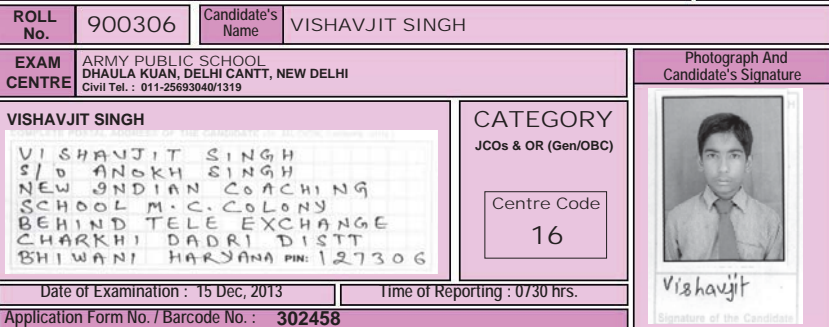 ROLL No. 900306 Candidate's Name VISHAVJIT SINGH
EXAM CENTRE
ARMY PUBLIC SCHOOL
DHAULA KUAN, DELHI CANTT, NEW DELHI
Civil Tel. : 011-25693040/1319
Photograph And
Candidate's Signature
VISHAVJIT SINGH
VISHAVJIT SINGH
S/O ANOKH SINGH
NEW INDIAN COACHING
SCHOOL M.C. COLONY
BEHIND TELE EXCHANGE
CHARKHI DADRI DISTT
BHIWANI HARYANA PIN: 127306
CATEGORY
JCOs & OR (Gen/OBC)
Centre Code
16
Vishavjit
Signature of the Candidate
Date of Examination : 15 Dec, 2013 Time of Reporting : 0730 hrs.
Application Form No. / Barcode No. : 302458